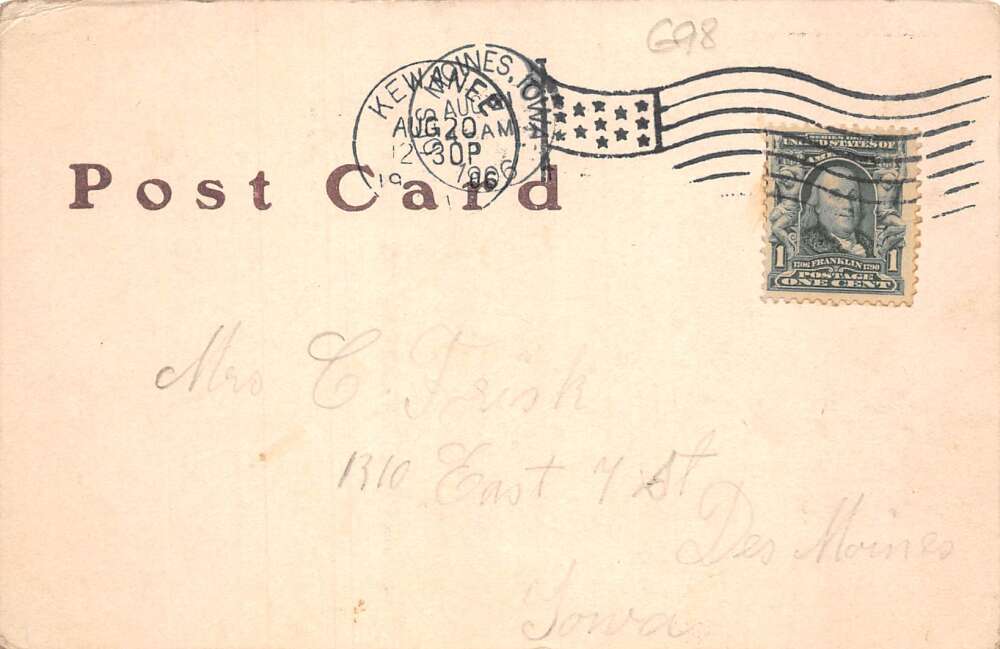 698
KEWANEE
AUG 20
12 30P
1906
MOINES, IOWA
AUG 21
AM
1906
Post Card
SERIES 1902
UNITED STATES OF AMERICA
1706 FRANKLIN 1790
1 1
POSTAGE
ONE CENT
Mrs C. Frisk
1310 East 7 St
Des Moines
Iowa